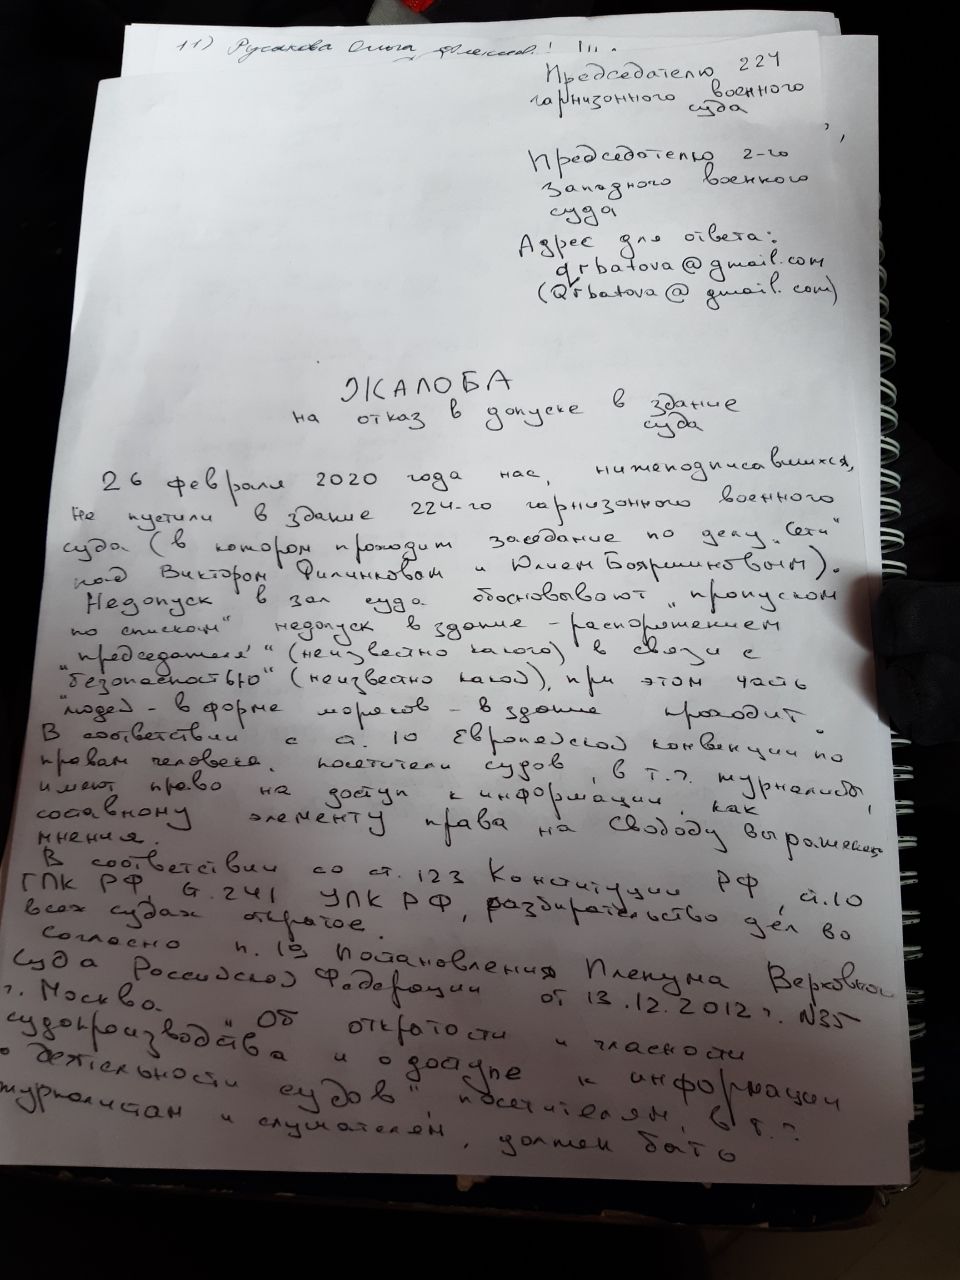 11) Русакова Ольга
Председателю 224
гарнизонного военного
суда
Председателю 2-го
Западного военного
суда
Адрес для ответа:
qrbatova@gmail.com
(Qrbatova@gmail.com)
ЖАЛОБА
на отказ в допуске в здание
суда
26 февраля 2020 года нас, нижеподписавшихся,
не пустили в здание 224-го гарнизонного военного
суда (в котором проходит заседание по делу „Сети“
над Виктором Филинковым и Юлием Бояршиновым).
Недопуск в зал суда обосновывают „пропуском
по спискам“ недопуск в здание - распоряжением
„председателя“ (неизвестно какого) в связи с
„безопасностью“ (неизвестно какой), при этом часть
людей - в форме моряков - в здание проходит.
В соответствии с ст. 10 Европейской конвенции по
правам человека, посетители судов, в т.ч. журналисты,
имеют право на доступ к информации, как
составному элементу права на свободу выражения
мнения.
В соответствии со ст. 123 Конституции РФ, ст. 10
ГПК РФ, ст. 241 УПК РФ, разбирательство дел во
всех судах открытое.
Согласно п. 19 Постановления Пленума Верховного
Суда Российской Федерации от 13.12.2012 г. N35
г. Москва. "Об открытости и гласности
судопроизводства и о доступе к информации
о деятельности судов", посетителям, в т.ч.
журналистам и слушателям, должен быть